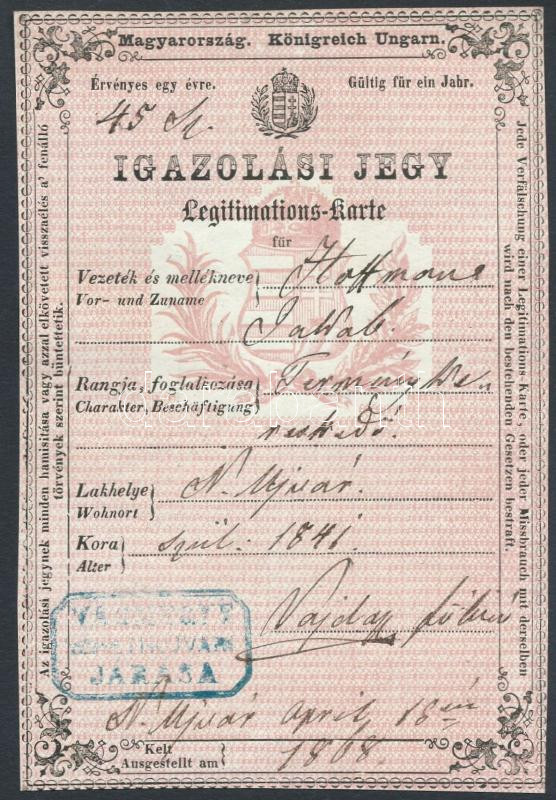 Magyarország. Königreich Ungarn.
Érvényes egy évre. Gültig für ein Jahr.
45
IGAZOLÁSI JEGY
Legitimations-Karte
für
Vezeték és mellékneve Hoffmann
Vor- und Zuname
Jakab.
Rangja, foglalkozása Termény ke-
Charakter, Beschäftigung
reskedő.
Lakhelye N. Ujvár.
Wohnort
Kora szül: 1841
Alter
Vajda
JÁRÁSA
N. Ujvár April 18án
Kelt 1868.
Ausgestellt am
Az igazolási jegynek minden hamisitása vagy azzal elkövetett visszaélés a' fenálló
törvények szerint büntettetik.
Jede Verfälschung einer Legitimations-Karte, oder jeder Missbrauch mit derselben
wird nach den bestehenden Gesetzen bestraft.